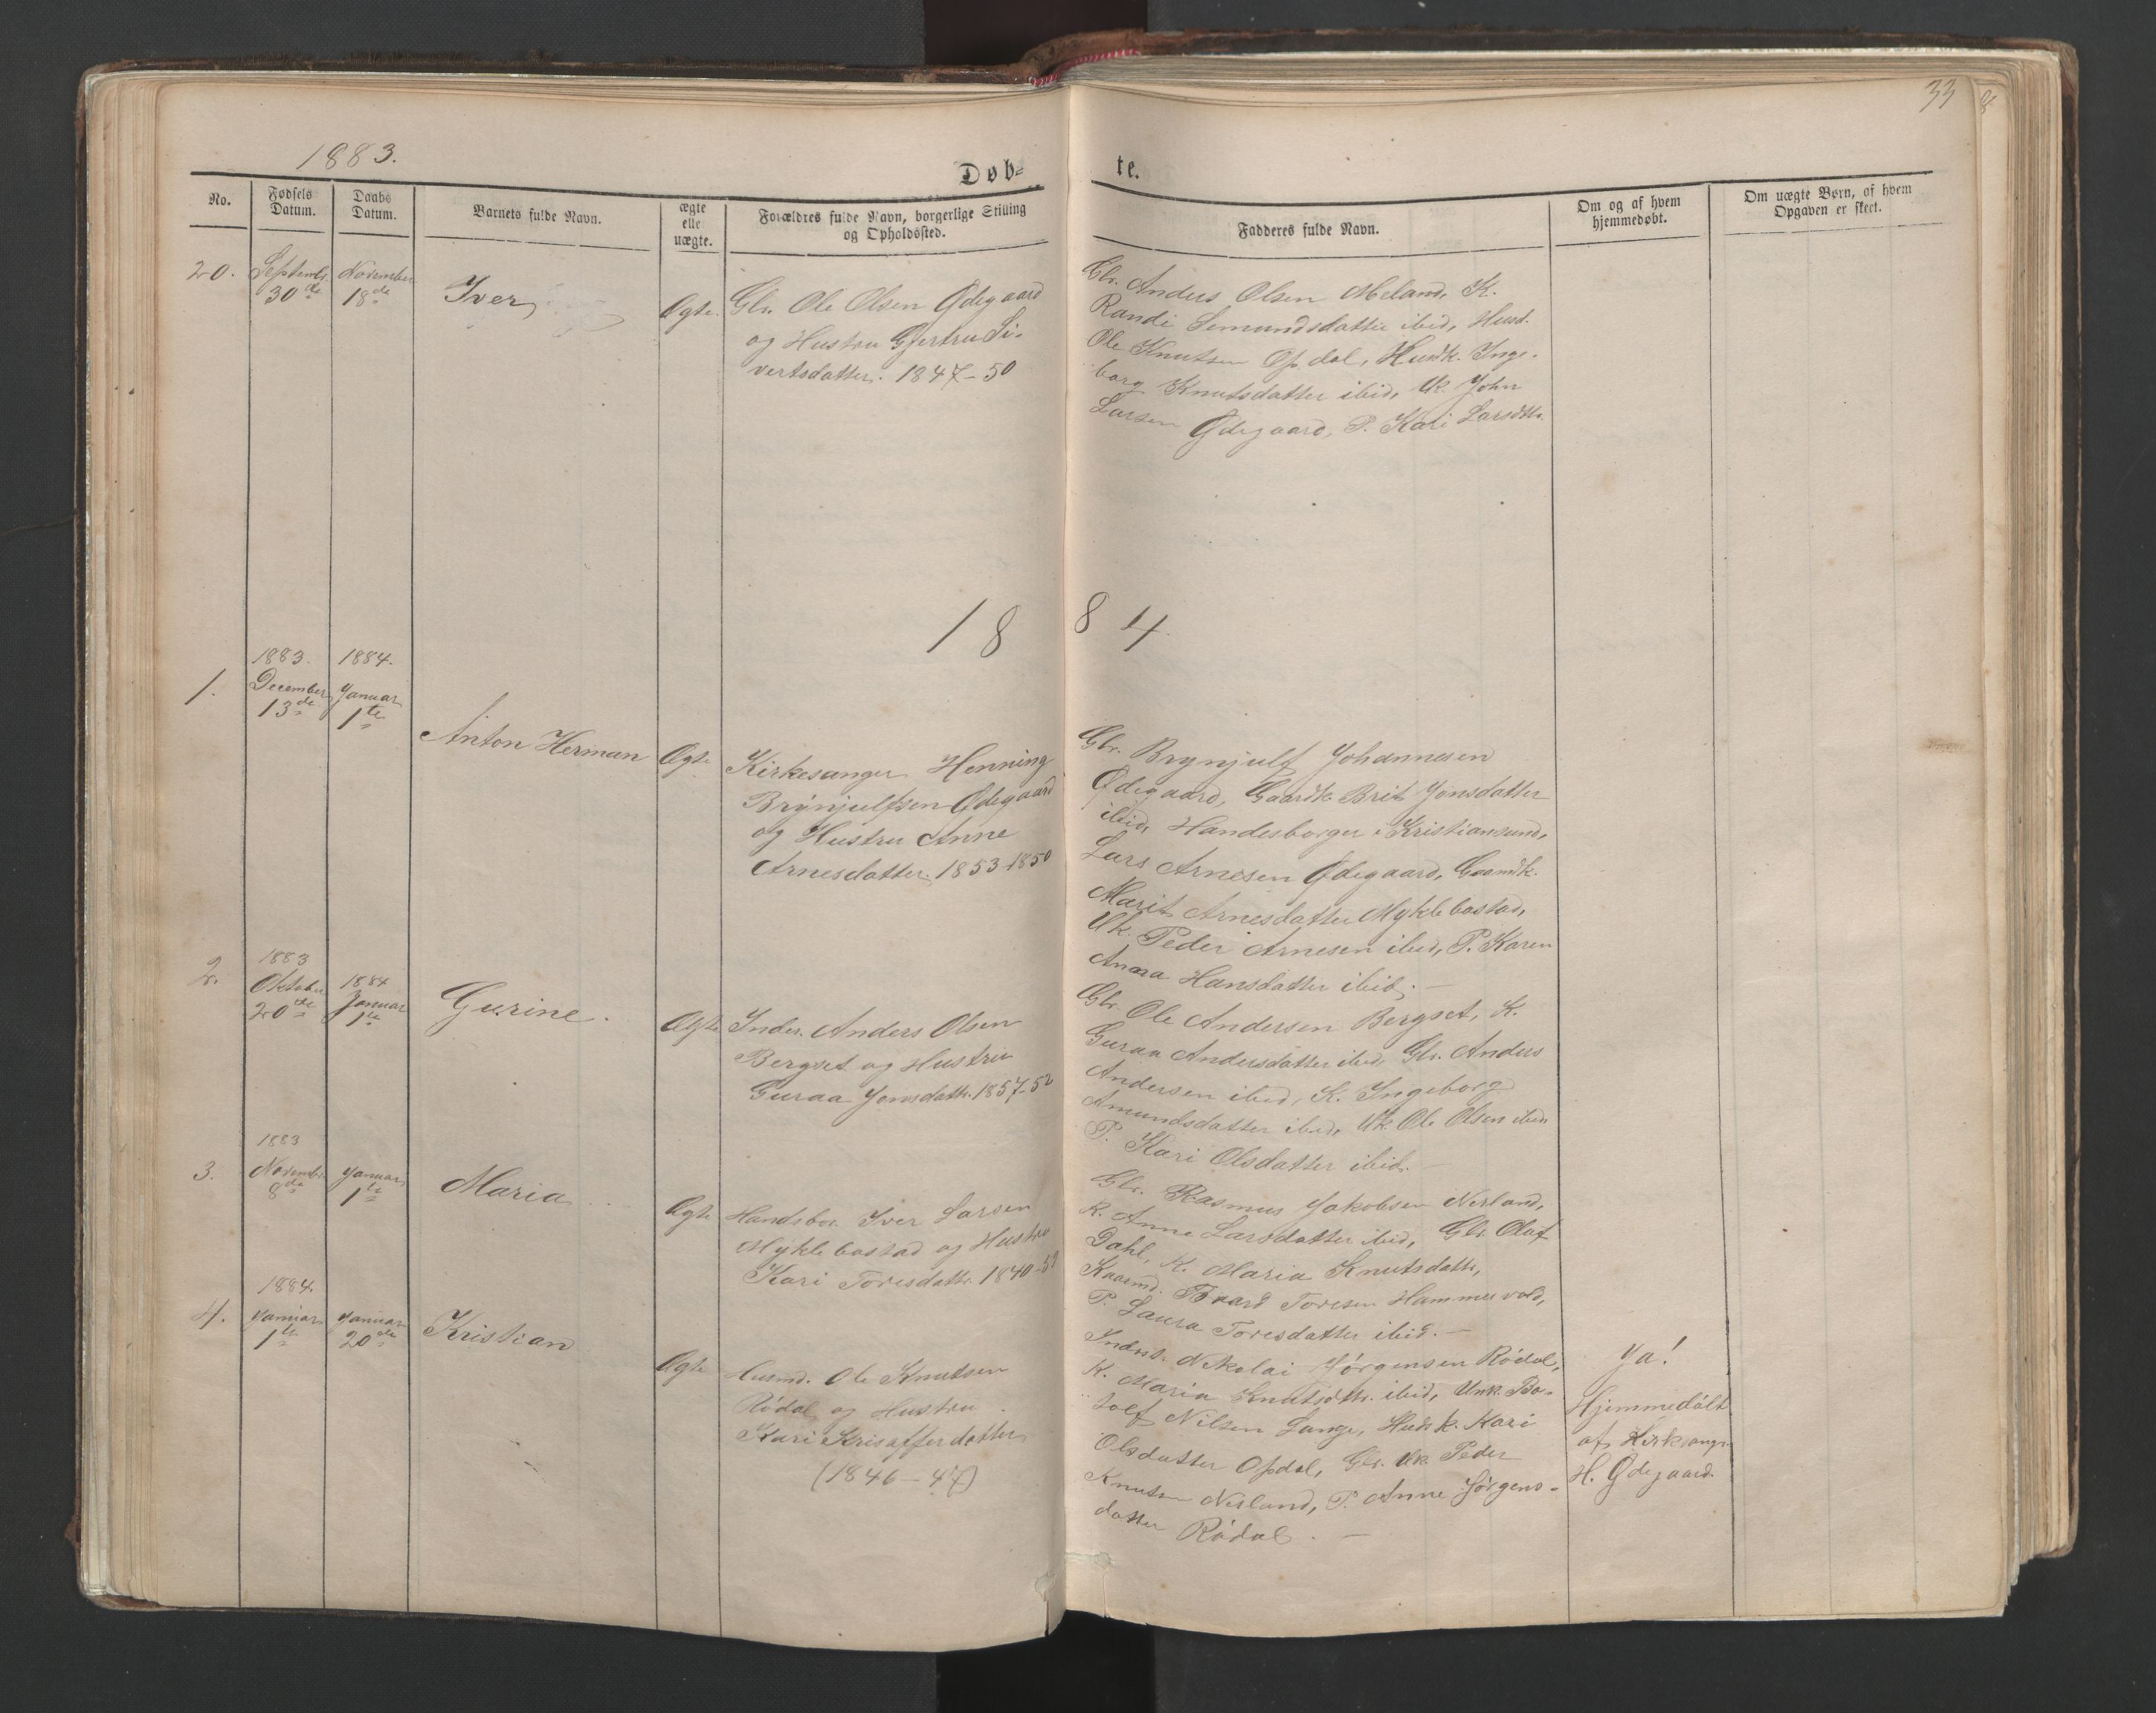 33
1883.
Døb=
te.
No.
Fødsels
Datum.
Daabs
Datum.
Barnets fulde Navn.
ægte
elle
uægte.
Forældres fulde Navn, borgerlige Stilling
og Opholdssted.
Fadderes fulde Navn.
Om og af hvem
hjemmedøbt.
Om uægte Børn, af hvem
Opgaven er skeet.
20.
Septembr
30de
November
18de
Iver
Ægte.
Gbr. Ole Olsen Ødegaard
og Hustru Gjertru Si-
vertsdatter. 1847-50
Gbr. Anders Olsen Meland, K.
Randi Semundsdatter ibid, Husd.
Ole Knutsen Opdal, Husk. Inge-
borg Knutsdatter ibid, Uk. John
Larsen Ødegaard, P. Kari Larsdtr.
1884.
1.
1883.
December
13de
1884.
Januar
1te
Anton Herman
Ægte
Kirkesanger Henning
Brynjulfsen Ødegaard
og Hustru Anne
Arnesdatter. 1853-1850
Gbr. Brynjulf Johannesen
Ødegaard, Gaardk. Brit Jonsdatter
ibid, Handesborger i Kristiansund,
Lars Arnesen Ødegaard, Gaardk.
Marit Arnesdatter Myklebostad,
Uk. Peder Arnesen ibid, P. Karen
Anna Hansdatter ibid. —
2.
1883
Oktober
20de
1884
Januar
1te
Gurine.
Ægte
Inder. Anders Olsen
Bergset og Hustru
Guraa Jonsdatt. 1857-52
Gbr. Ole Andersen Bergset, K.
Guraa Andersdatter ibid, Gbr. Anders
Andersen ibid, K. Ingeborg
Amundsdatter ibid, Uk. Ole Olsen ibid
P. Kari Olsdatter ibid. —
3.
1883
Novembr
8de
Januar
1te
Maria
Ægte
Handsbor. Iver Larsen
Myklebostad og Hustru
Kari Toresdatt. 1840-53
Gbr. Rasmus Jakobsen Nesland,
K. Anne Larsdatter ibid, Gbr. Olaf
Dahl, K. Maria Knutsdatt,
Kaarmd. Baard Toresen Hammervold,
P. Laura Toresdatter ibid. —
4.
1884.
Januar
1te
Januar
20de
Kristian
Ægte
Husmd. Ole Knutsen
Rødal og Hustru
Kari Krisofferdatter
(1846-47)
Inders. Nikolai Jørgensen Rødal,
K. Maria Knutsdtr. ibid, Unk. Bo-
tolf Nilsen Lange, Husk. Kari
Olsdatter Opdal, Gbr. Uk. Peder
Knutsen Nesland, P. Anne Jørgens-
datter Rødal. —
Ja!
Hjemmedøbt
af Kirksangr
H. Ødegaard.